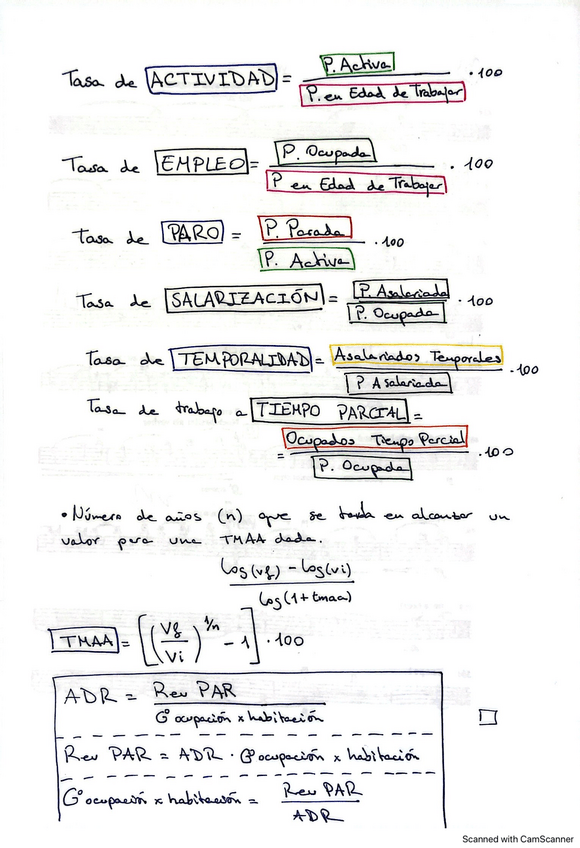 Tasa de ACTIVIDAD = P. Activa / P. en Edad de Trabajar · 100
Tasa de EMPLEO = P. Ocupada / P en Edad de Trabajar · 100
Tasa de PARO = P. Parada / P. Activa · 100
Tasa de SALARIZACIÓN = P. Asalariada / P. Ocupada · 100
Tasa de TEMPORALIDAD = Asalariados Temporales / P Asalariada · 100
Tasa de trabajo a TIEMPO PARCIAL =
= Ocupados Tiempo Parcial / P. Ocupada · 100
• Número de años (n) que se tarda en alcanzar un
valor para una TMAA dada.
log(vf) - log(vi) / log(1 + tmaa)
TMAA = [(Vf / Vi)^1/n - 1] · 100
ADR = Rev PAR / Gº ocupación x habitación
Rev PAR = ADR · Gº ocupación x habitación
Gº ocupación x habitación = Rev PAR / ADR
Scanned with CamScanner